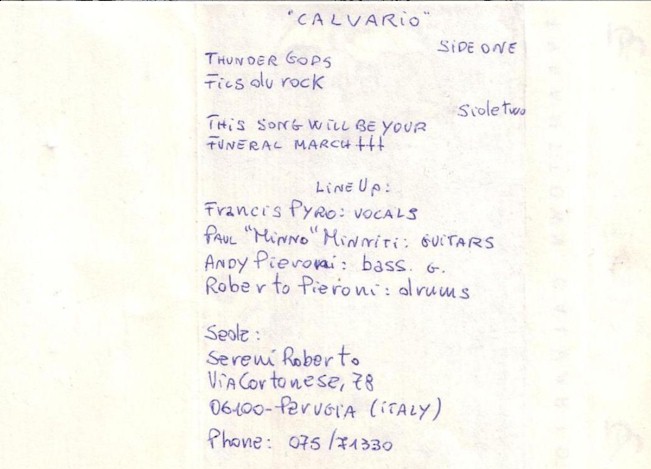 "CALVARIO"
SIDE ONE
THUNDER GODS
Fils du rock
Side two
THIS SONG WILL BE YOUR
FUNERAL MARCH †††
LINE UP:
Francis PYRO: VOCALS
PAUL "MINNO" MINNITI: GUITARS
ANDY Pieroni: bass. G.
Roberto Pieroni: drums
Sede:
Sereni Roberto
Via Cortonese, 78
06100-PERUGIA (ITALY)
Phone: 075/71330